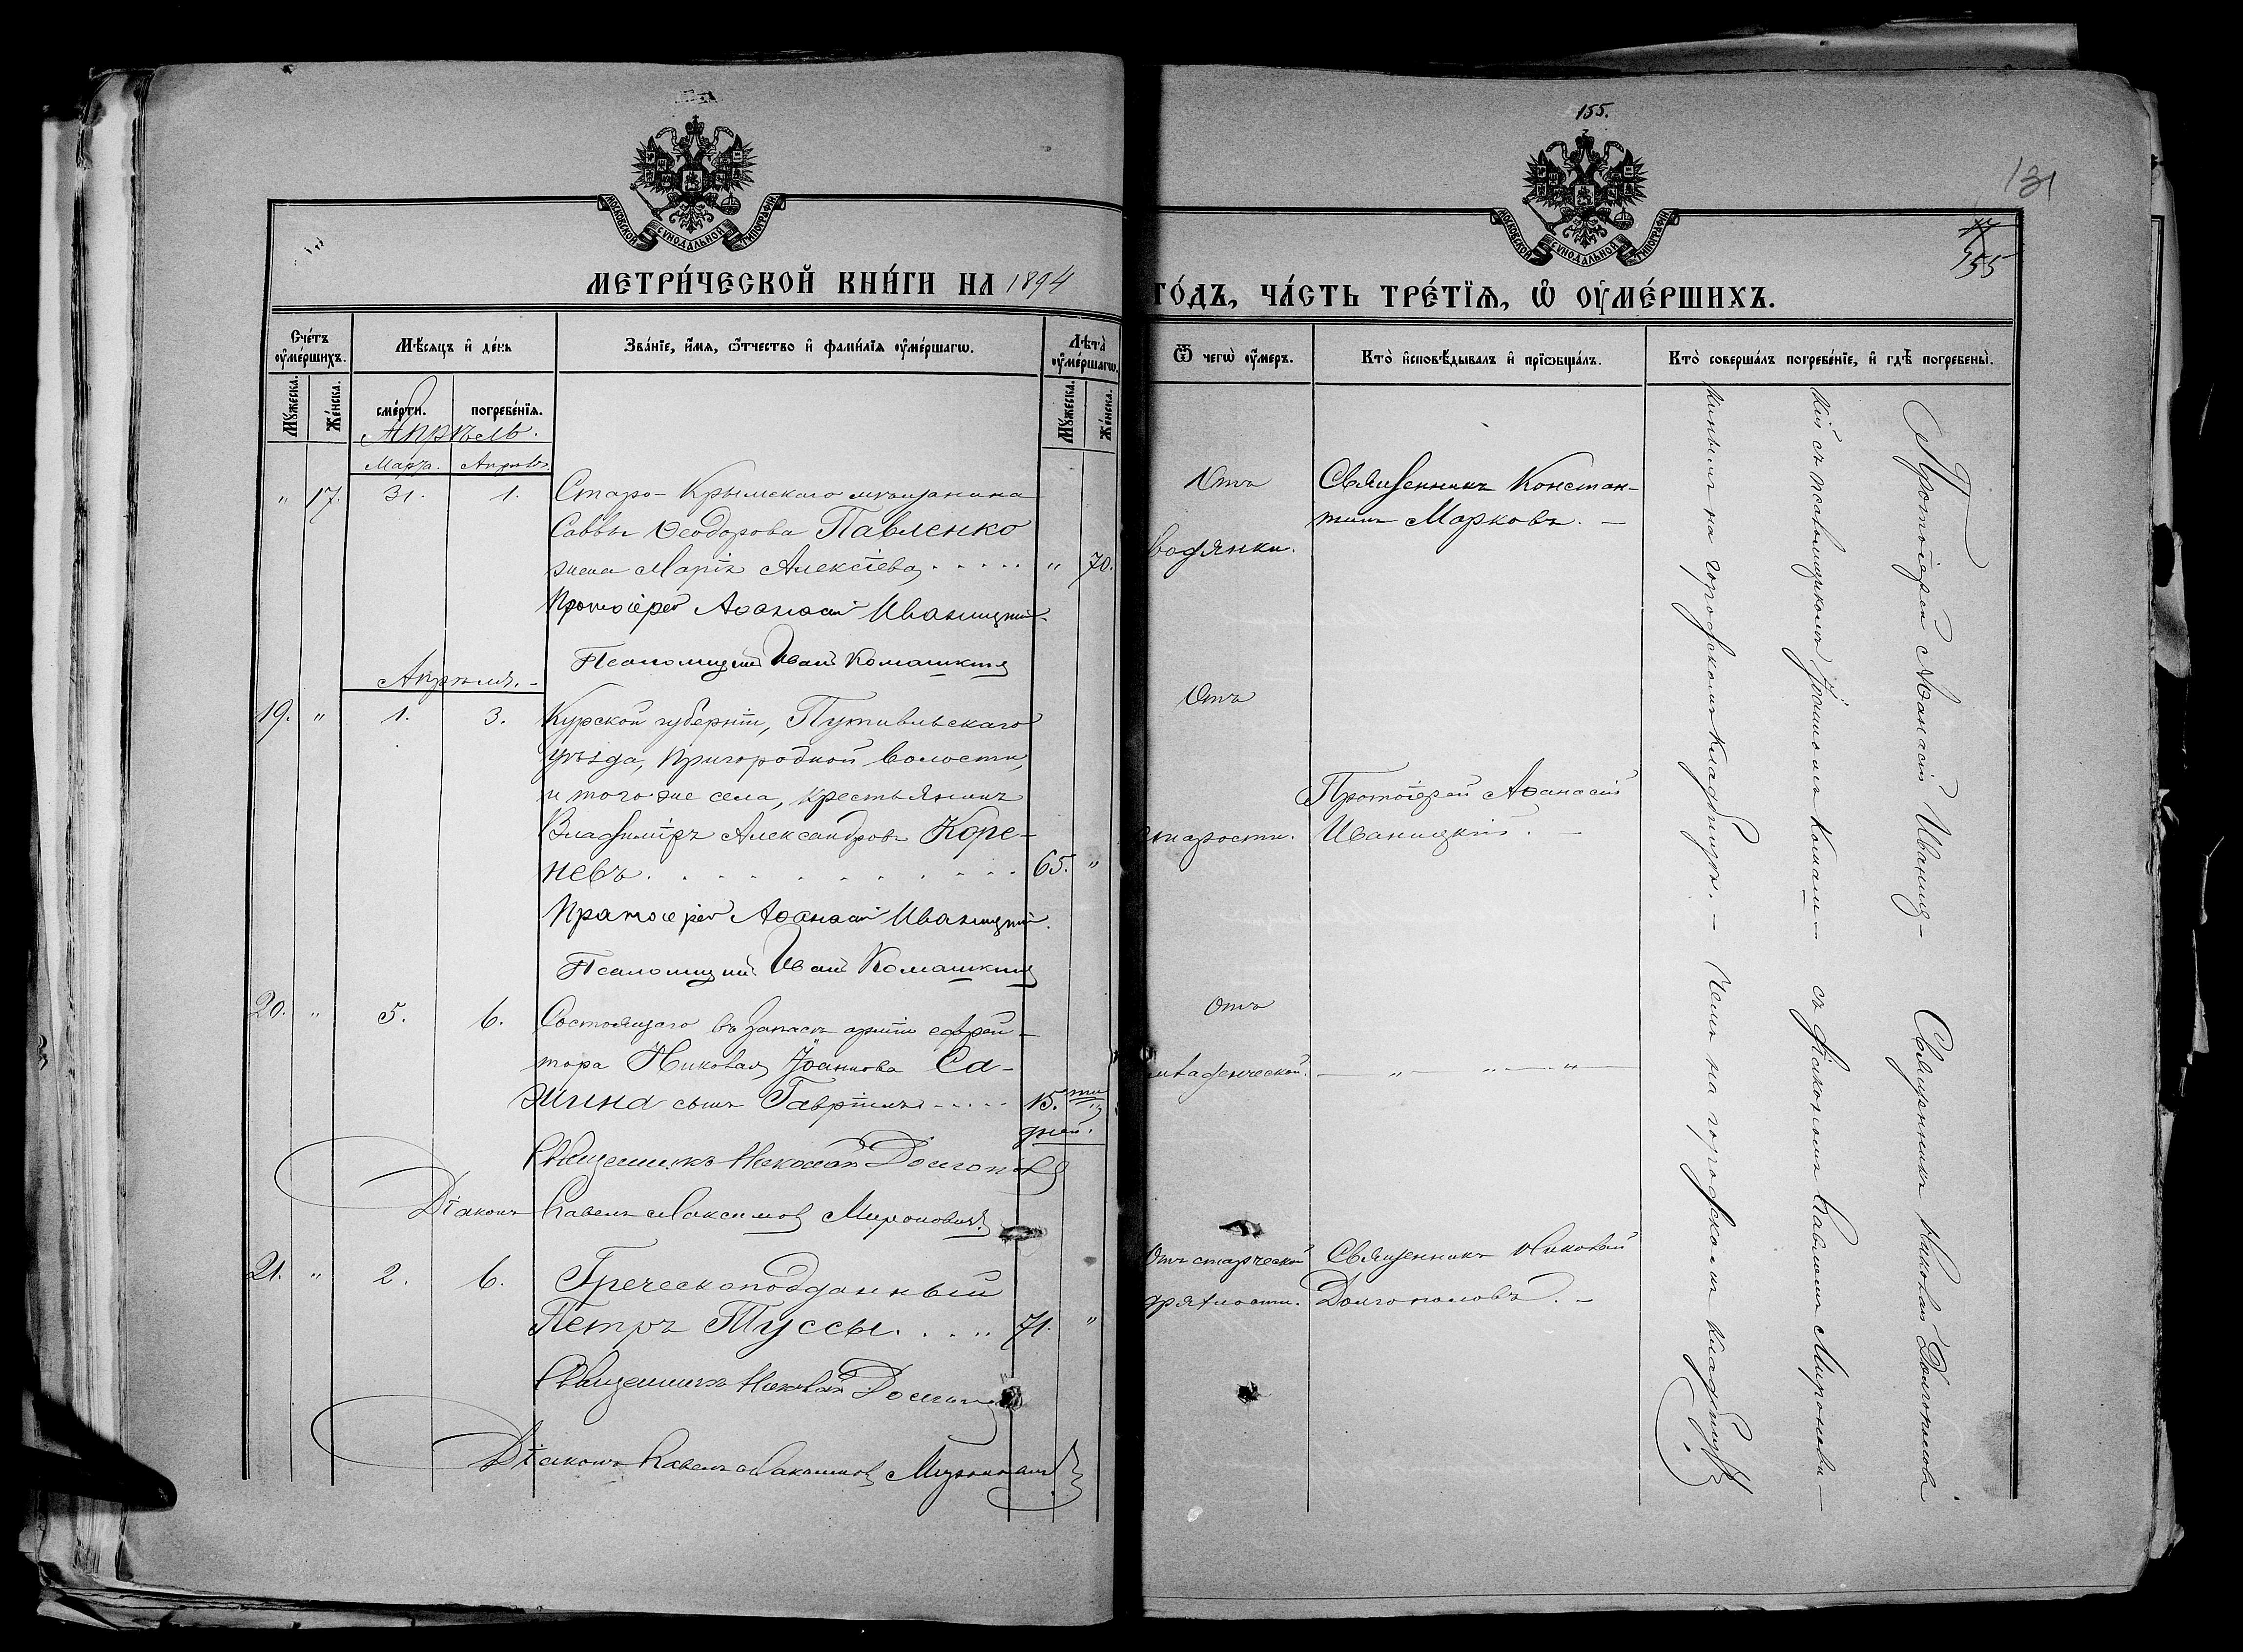 155.
131
155
МОСКОВСКОЙ СѴНОДАЛЬНОЙ ТИПОГРАФІИ
МОСКОВСКОЙ СѴНОДАЛЬНОЙ ТИПОГРАФІИ
МЕТРИ́ЧЕСКОЙ КНИ́ГИ НА 1894
ГО́ДЪ, ЧА́СТЬ ТРЕ́ТЇѦ, Ѡ҆ ОУ҆МЕ́РШИХЪ.
Сче́тъ оу҆ме́ршихъ.
Мѣ́сѧцъ и҆ де́нь
Зва́нїе, и҆́мѧ, ѻ҆́тчество и҆ фами́лїѧ оу҆ме́ршагѡ.
Лѣ́та оу҆ме́ршагѡ.
Ѿ чегѡ̀ оу҆́меръ.
Кто̀ и҆сповѣ́дывалъ и҆ прїѡбща́лъ.
Кто̀ соверша́лъ погребе́нїе, и҆ гдѣ̀ погребены̀.
Мꙋ́жеска.
Же́нска.
сме́рти.
погребе́нїѧ.
Мꙋ́жеска.
Же́нска.
Апрѣль.
Марта. Апрѣля.
" 17. 31. 1. Старо-Крымскаго мѣщанина
Саввы Ѳеодорова Павленко
жена Марія Алексіева . . . . . " 70.
Протоіерей Аѳанасій Иваницкій.
Псаломщикъ Иванъ Комашкинъ
Отъ
водянки.
Священникъ Констан-
тинъ Марковъ. —
Апрѣля. -
19. " 1. 3. Курской губерніи, Путивльскаго
уѣзда, Пригородной волости,
и того же села, крестьянинъ
Владиміръ Александровъ Коре-
невъ. . . . . . . . . . 65. "
Протоіерей Аѳанасій Иваницкій.
Псаломщикъ Иванъ Комашкинъ
Отъ
старости.
Протоіерей Аѳанасій
Иваницкій. —
20. " 5. 6. Состоящаго въ запасѣ арміи ефрей-
тора Николая Іоаннова Са-
жина сынъ Гавріилъ . . . . . 15. ти "
дней.
Священникъ Николай Долгополовъ
Діаконъ Павелъ Максимовъ Мироновичъ.
Отъ
младенческой. — " — " — " —
21. " 2. 6. Греческоподданный
Петръ Туссы. . . . . 71. "
Священникъ Николай
Діаконъ Павелъ Максимовъ Мироновичъ
Отъ старческой
дряхлости.
Священникъ Николай
Долгополовъ. —
Протоіерей Аѳанасій Иваниц-
кій съ псаломщикомъ Іоанномъ Комаш-
кинымъ на городскомъ кладбищѣ. —
Священникъ Николай Долгополовъ
съ діакономъ Павломъ Миронови-
чемъ на городскомъ кладбищѣ.